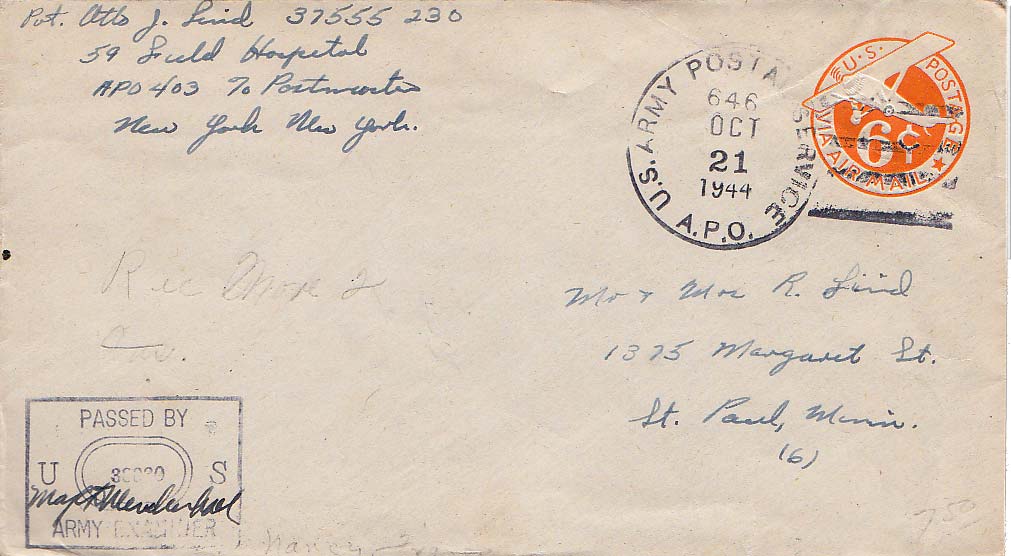 Pvt. Otto J. Lind 37555 230
59 Field Hospital
APO 403 % Postmaster
New York New York.
U.S. ARMY POSTAL SERVICE
646
OCT
21
1944
A.P.O.
U.S. POSTAGE
6¢
VIA AIR MAIL
Rec
Mr & Mrs R. Lind
1375 Margaret St.
St. Paul, Minn.
(6)
PASSED BY
U S
ARMY EXAMINER
7.50